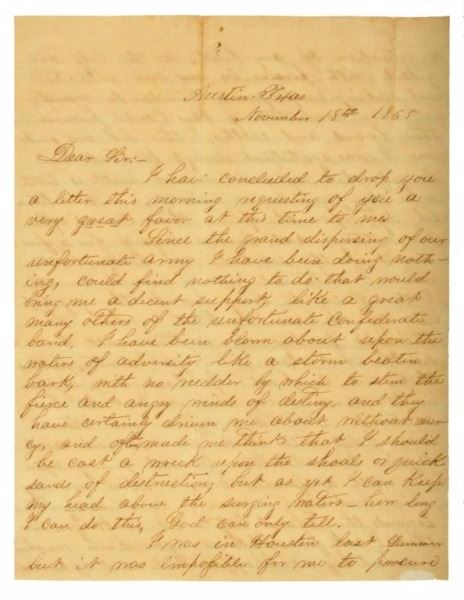 Austin Texas
November 18th 1865
Dear Sir:-
I have concluded to drop you
a litter this morning requesting of you a
very great favor at this time to me
Since the grand dispersing of our
unfortunate army I have been doing noth-
ing, could find nothing to do that would
bring me a decent support, like a great
many others of the unfortunate Confederate
band, I have been blown about upon the
waters of adversity like a storm beaten
bark, with no rudder by which to stem the
fierce and angry winds of destiny and they
have certainly driven me about without mer-
cy, and often made me think that I should
be cast a wreck upon the shoals or quick
sands of destruction, but as yet I can keep
my head above the surging waters – how long
I can do this, God can only tell.
I was in Houston last Summer
but it was impossible for me to procure